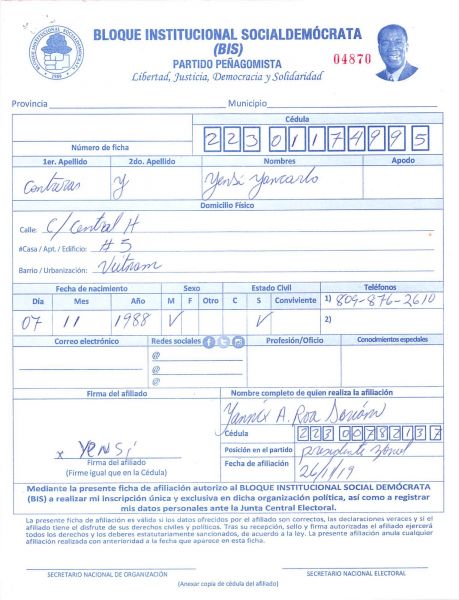 BLOQUE INSTITUCIONAL SOCIALDEMÓCRATA
(BIS)
PARTIDO PEÑAGOMISTA
Libertad, Justicia, Democracia y Solidaridad
04870
Provincia Municipio
Cédula
Número de ficha 22301174995
1er. Apellido 2do. Apellido Nombres Apodo
Contreras y Yensi Yancarlo
Domicilio Físico
Calle: C/ Central H
#Casa / Apt. / Edificio: # 5
Barrio / Urbanización: Vietnam
Fecha de nacimiento Sexo Estado Civil Teléfonos
Día Mes Año M F Otro C S Conviviente 1) 809-876-2610
07 11 1988 V V 2)
Correo electrónico Redes sociales Profesión/Oficio Conocimientos especiales
@
@
@
Firma del afiliado Nombre completo de quien realiza la afiliación
Yannix A. Roa
Cédula
22300782137
x Yensi Posición en el partido presidente zonal
Firma del afiliado Fecha de afiliación
(Firme igual que en la Cédula) 26/1/19
Mediante la presente ficha de afiliación autorizo al BLOQUE INSTITUCIONAL SOCIAL DEMÓCRATA
(BIS) a realizar mi inscripción única y exclusiva en dicha organización política, así como a registrar
mis datos personales ante la Junta Central Electoral.
La presente ficha de afiliación es válida si los datos ofrecidos por el afiliado son correctos, las declaraciones veraces y si el
afiliado tiene el disfrute de sus derechos civiles y políticos. Tras su recepción, sello y firma autorizadas el afiliado ejercerá
todos los derechos y los deberes estatutariamente sancionados, de acuerdo a la ley. La presente afiliación anula cualquier
afiliación realizada con anterioridad a la fecha que aparece en esta ficha.
SECRETARIO NACIONAL DE ORGANIZACIÓN SECRETARIO NACIONAL ELECTORAL
(Anexar copia de cédula del afiliado)